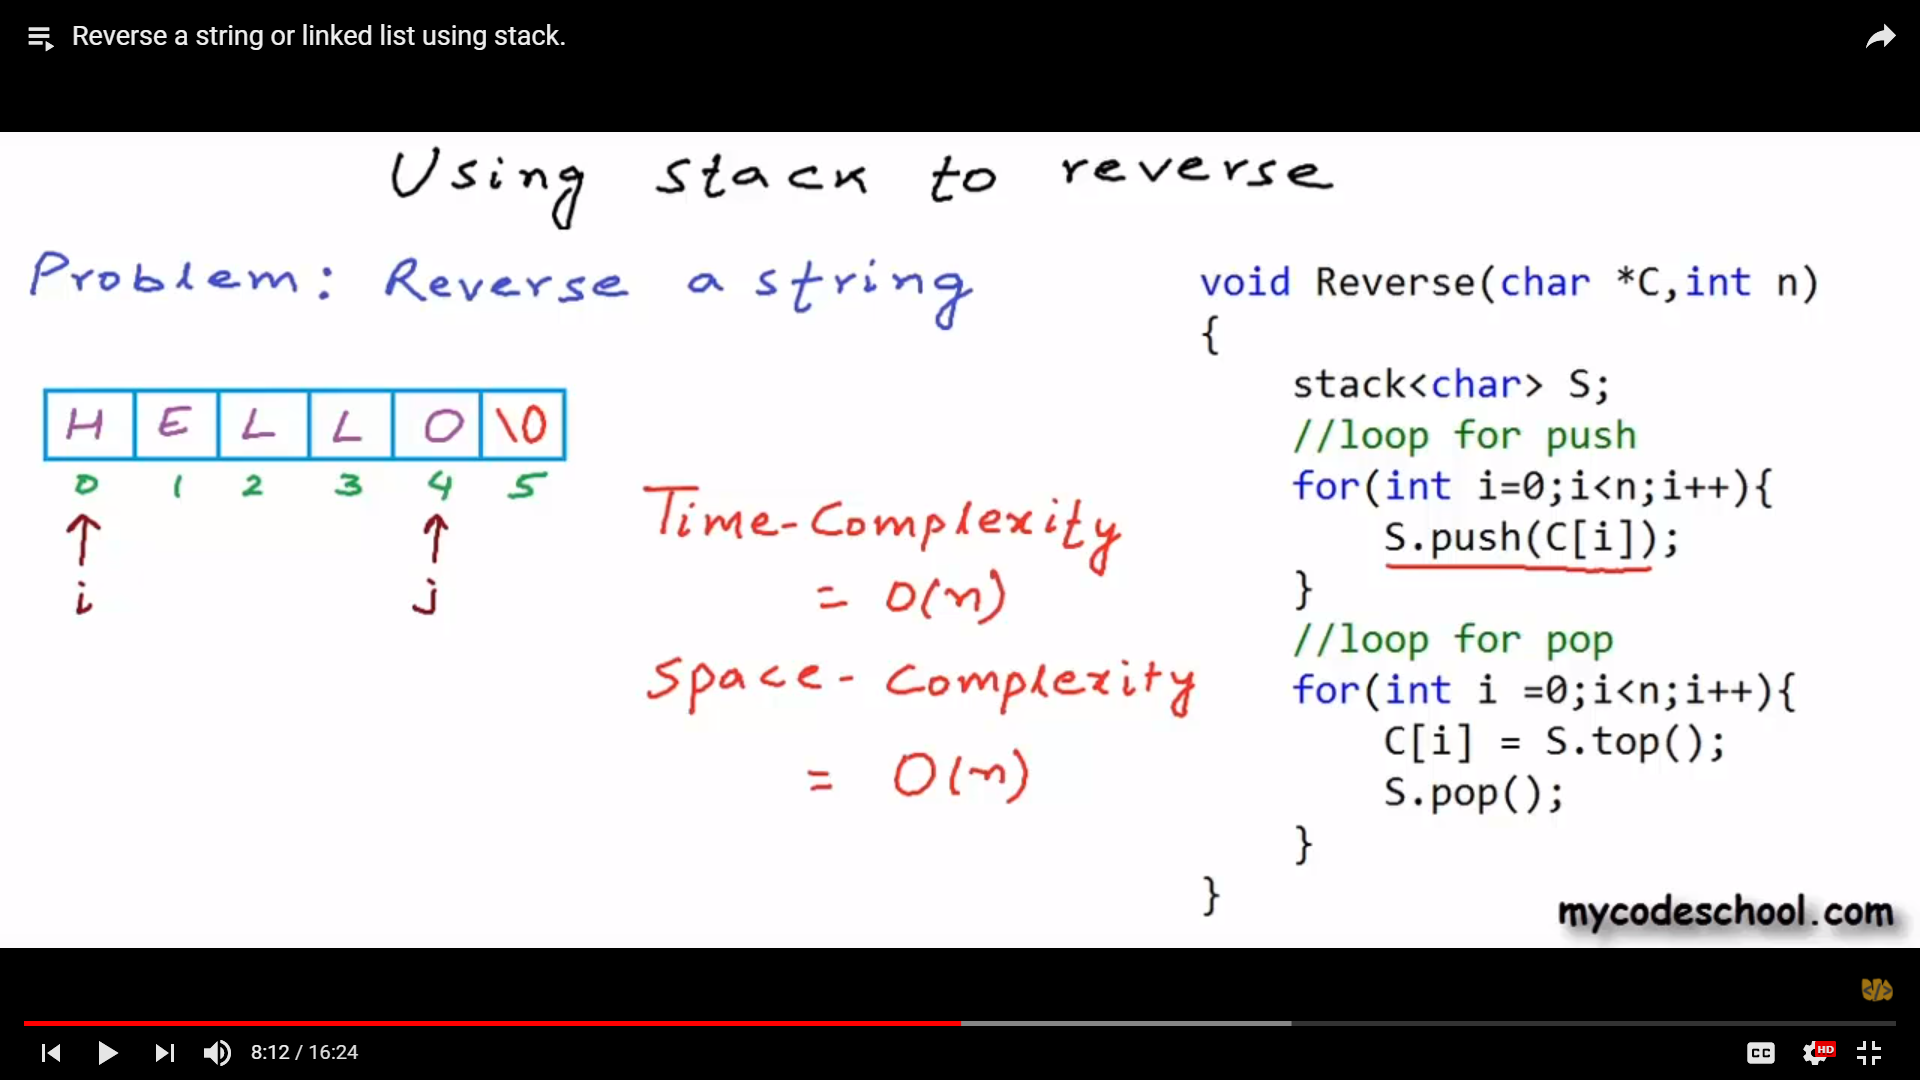 Reverse a string or linked list using stack.
Using stack to reverse
Problem: Reverse a string
H E L L O \0
0 1 2 3 4 5
i j
Time-Complexity
= O(n)
Space-Complexity
= O(n)
void Reverse(char *C,int n)
{
stack<char> S;
//loop for push
for(int i=0;i<n;i++){
S.push(C[i]);
}
//loop for pop
for(int i =0;i<n;i++){
C[i] = S.top();
S.pop();
}
}
mycodeschool.com
</>
8:12 / 16:24
CC
HD